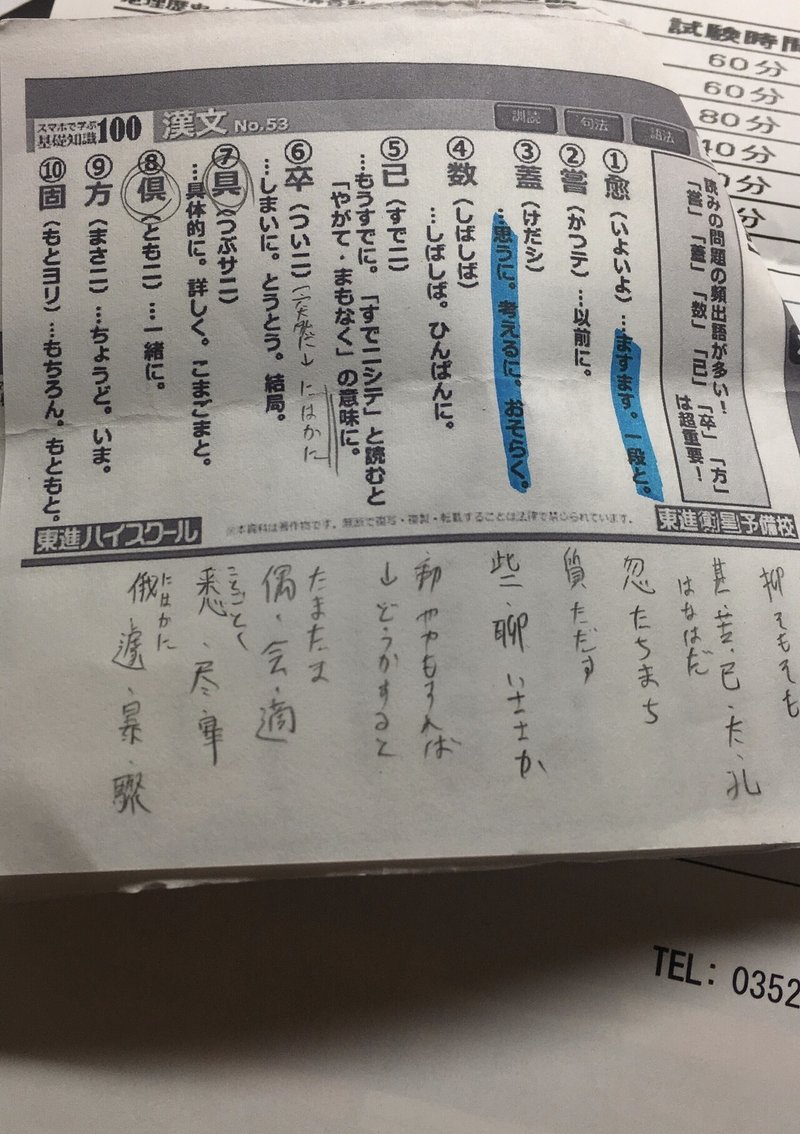 試験時間
60分
60分
80分
40分
スマホで学ぶ
基礎知識
100
漢文 No.53
訓読
句法
語法
読みの問題の頻出語が多い！
「嘗」「蓋」「数」「已」「卒」「方」
は超重要！
①愈（いよいよ）…ますます。一段と。
②嘗（かつテ）…以前に。
③蓋（けだシ）
…思うに。考えるに。おそらく。
④数（しばしば）
…しばしば。ひんぱんに。
⑤已（すでニ）
…もうすでに。「すでニシテ」と読むと
「やがて・まもなく」の意味に。
⑥卒（ついニ）
…しまいに。とうとう。結局。
↓にはかに
⑦具（つぶサニ）
…具体的に。詳しく。こまごまと。
⑧倶（ともニ）…一緒に。
⑨方（まさニ）…ちょうど。いま。
⑩固（もとヨリ）…もちろん。もともと。
東進ハイスクール
※本資料は著作物です。無断で複写・複製・転載することは法律で禁じられています。
東進衛星予備校
抑そもそも
甚・苦・已・太・
はなはだ
忽たちまち
質ただす
些・聊 いささか
動ややもすれば
↓どうかすると
たまたま
偶・会・適
ことごとく
悉・尽・畢
にはかに
俄・遽・暴・驟
TEL: 0352